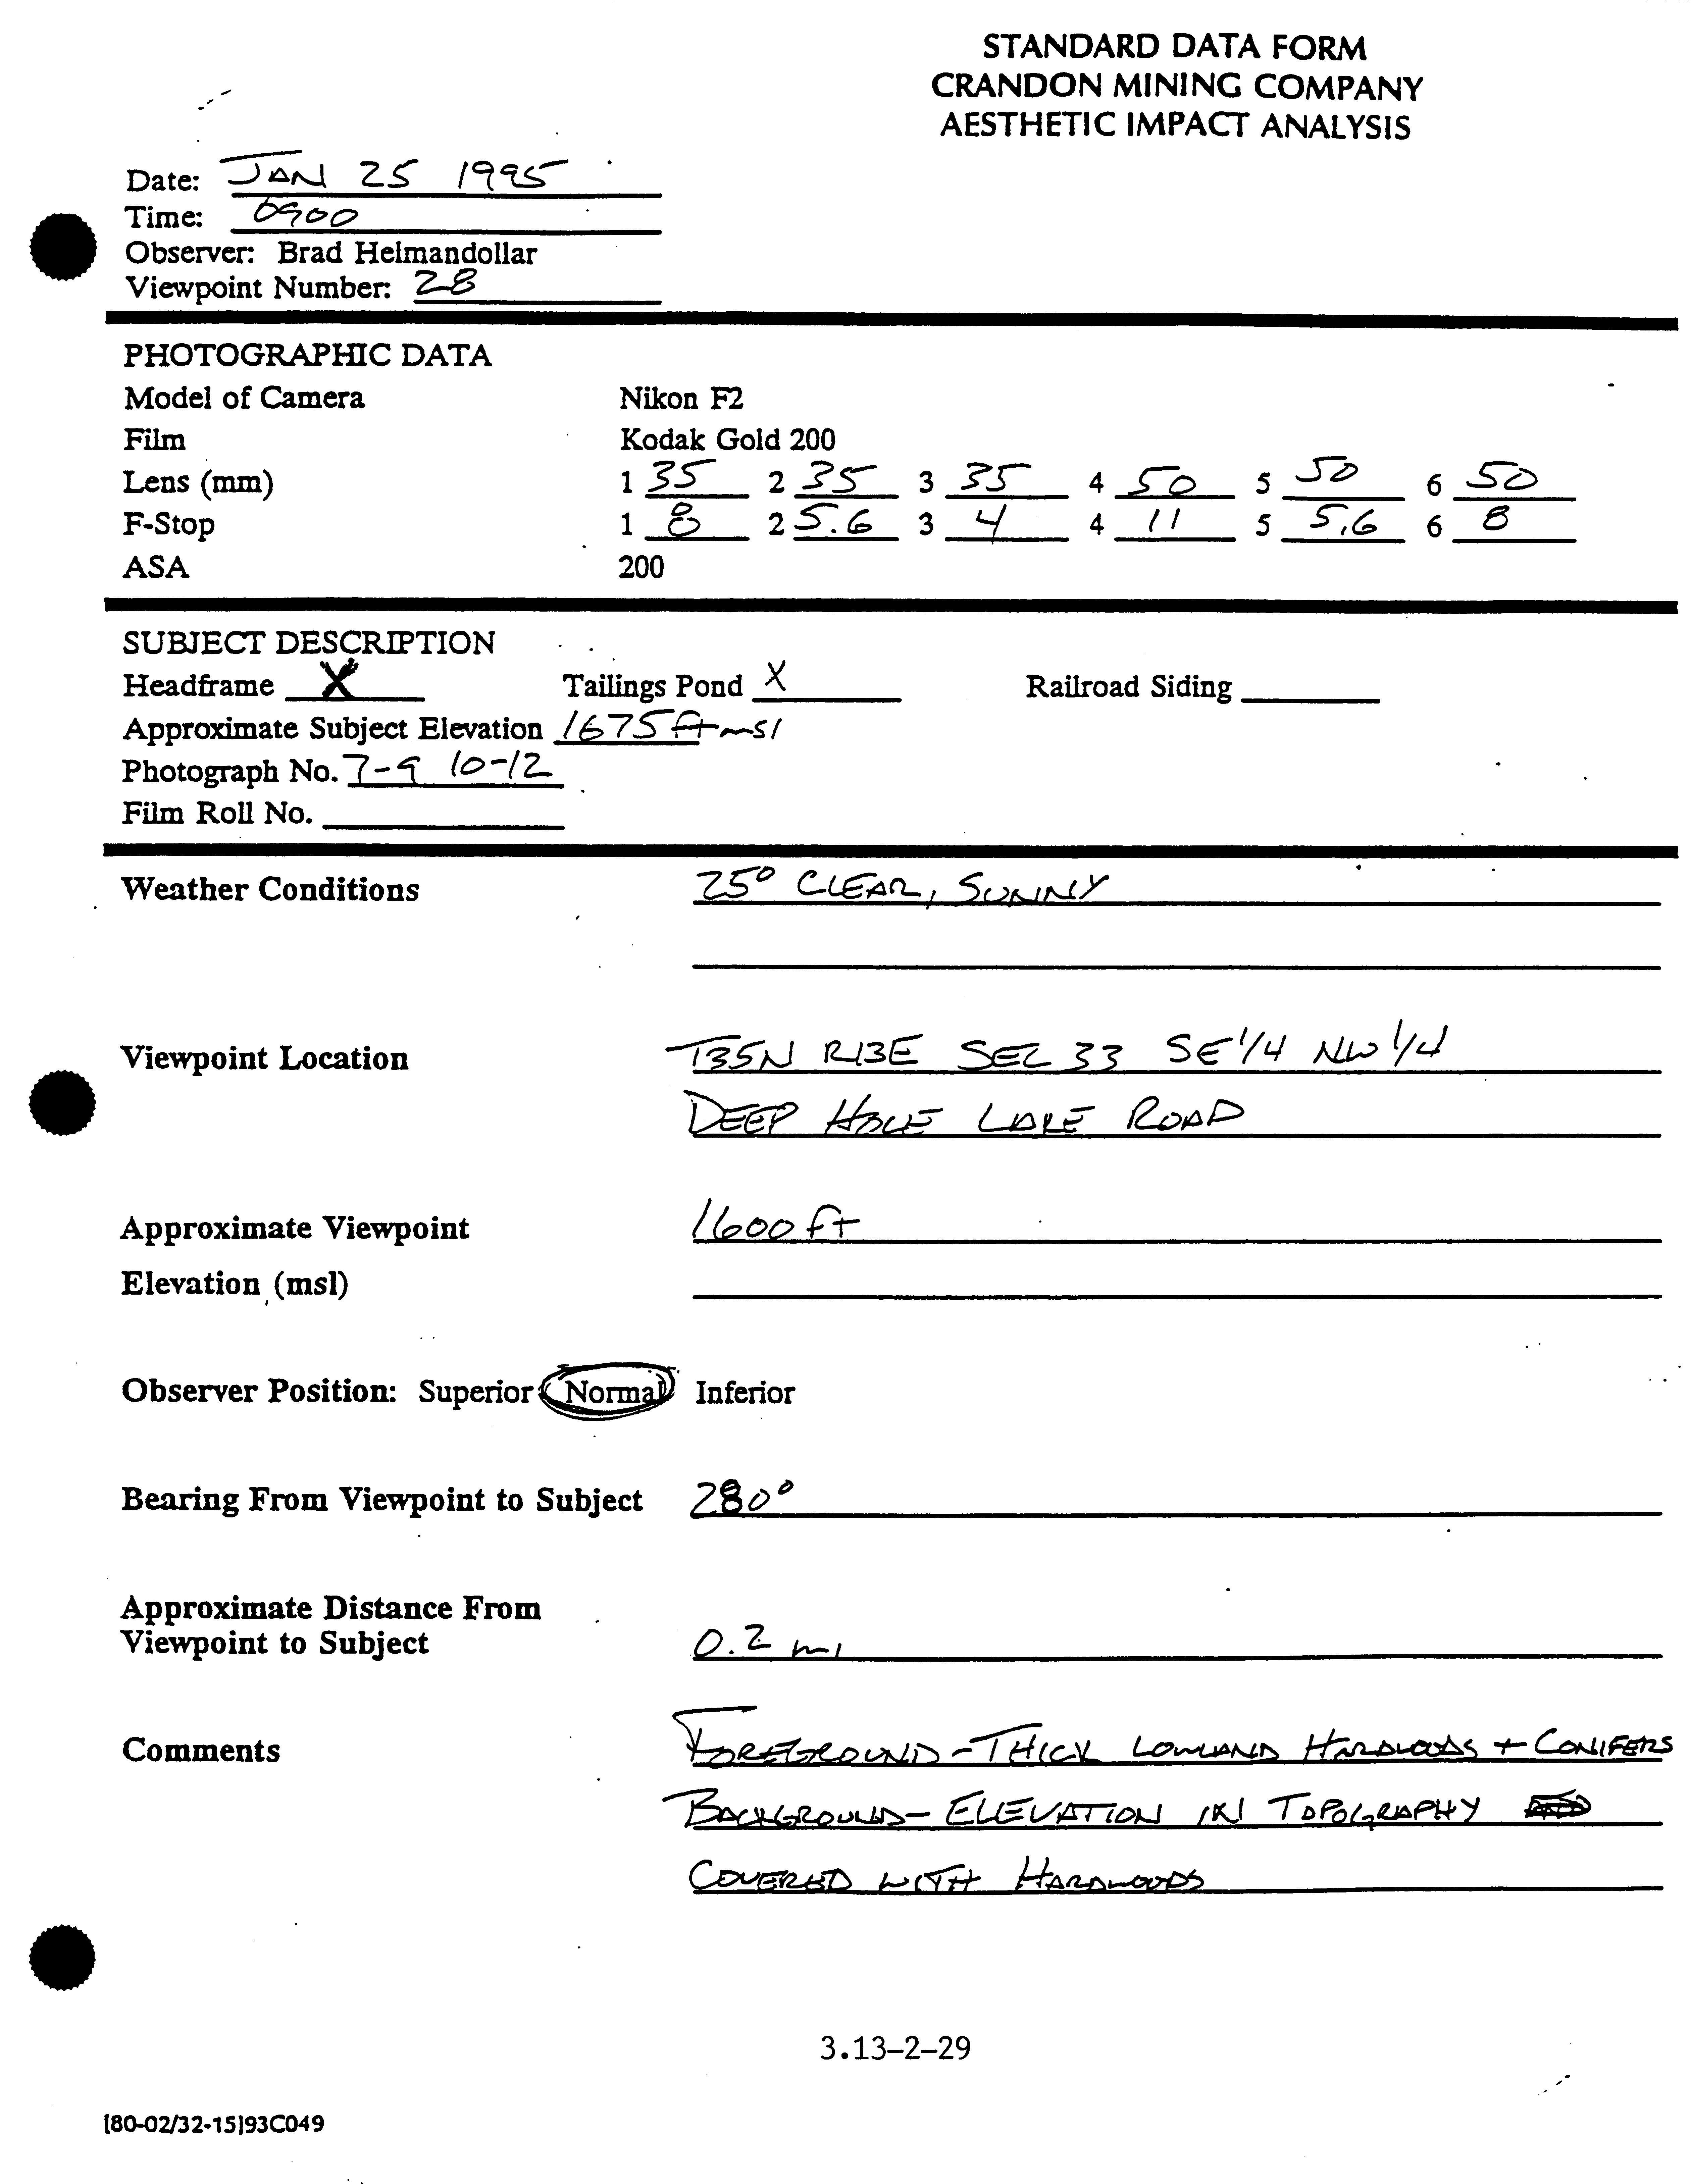 STANDARD DATA FORM
CRANDON MINING COMPANY
AESTHETIC IMPACT ANALYSIS
Date: JAN 25 1995
Time: 0900
Observer: Brad Helmandollar
Viewpoint Number: 28
PHOTOGRAPHIC DATA
Model of Camera Nikon F2
Film Kodak Gold 200
Lens (mm) 1 35 2 35 3 35 4 50 5 50 6 50
F-Stop 1 8 2 5.6 3 4 4 11 5 5.6 6 8
ASA 200
SUBJECT DESCRIPTION
Headframe X Tailings Pond X Railroad Siding
Approximate Subject Elevation 1675 ft msl
Photograph No. 7-9 10-12
Film Roll No.
Weather Conditions 25° CLEAR, SUNNY
Viewpoint Location T35N R13E SEC 33 SE 1/4 NW 1/4
DEEP HOLE LAKE ROAD
Approximate Viewpoint 1600 ft
Elevation (msl)
Observer Position: Superior Normal Inferior
Bearing From Viewpoint to Subject 280°
Approximate Distance From
Viewpoint to Subject 0.2 mi
Comments FOREGROUND - THICK LOWLAND HARDWOODS + CONIFERS
BACKGROUND - ELEVATION IN TOPOGRAPHY
COVERED WITH HARDWOODS
3.13-2-29
[80-02/32-15]93C049